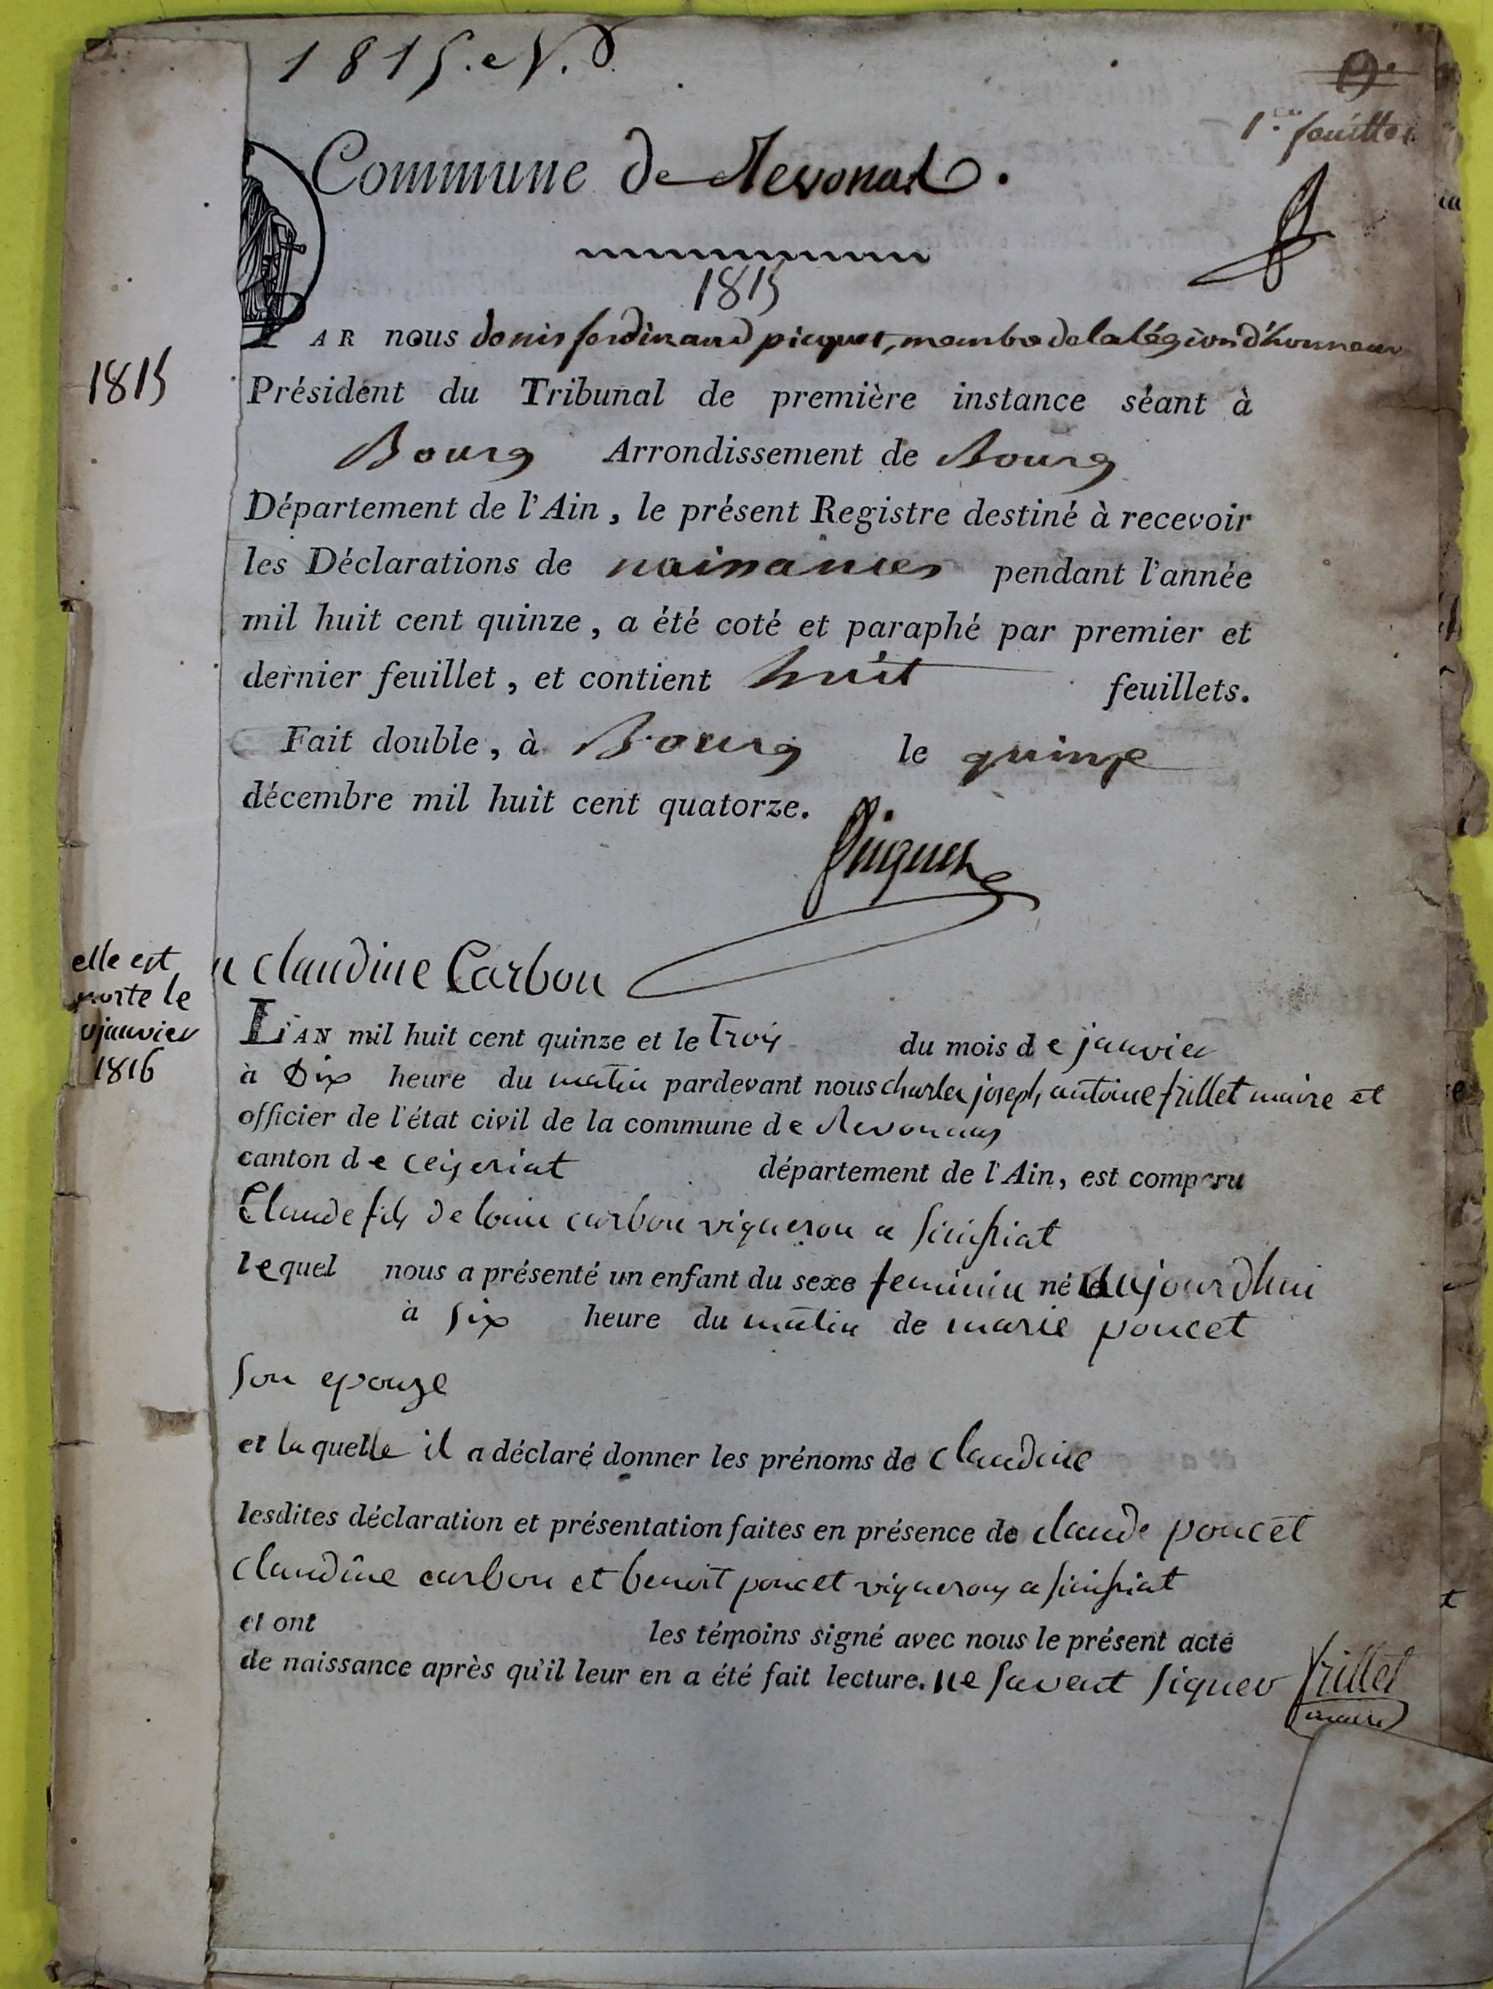 1815. N.
1.er feuillet
Commune de Revonas.
1815
PAR nous denis ferdinand picquet, membre de la légion d'honneur
1815
Président du Tribunal de première instance séant à
Bourg Arrondissement de Bourg
Département de l'Ain, le présent Registre destiné à recevoir
les Déclarations de naissances pendant l'année
mil huit cent quinze, a été coté et paraphé par premier et
dernier feuillet, et contient huit feuillets.
Fait double, à Bourg le quinze
décembre mil huit cent quatorze.
Picquet
elle est
morte le
janvier
1816
claudine Carbon
L'AN mil huit cent quinze et le Trois du mois de janvier
à Dix heure du matin pardevant nous charles joseph antoine frillet maire et
officier de l'état civil de la commune de Revonnas
canton de ceyseriat département de l'Ain, est comparu
Claude fils de louis carbon vigneron a
lequel nous a présenté un enfant du sexe feminin né aujourdhui
à six heure du matin de marie poncet
son epouze
et la quelle il a déclaré donner les prénoms de claudine
lesdites déclaration et présentation faites en présence de claude poncet
claudine carbon et benoit poncet vignerons a
et ont les témoins signé avec nous le présent acte
de naissance après qu'il leur en a été fait lecture. ne savent signer frillet
maire